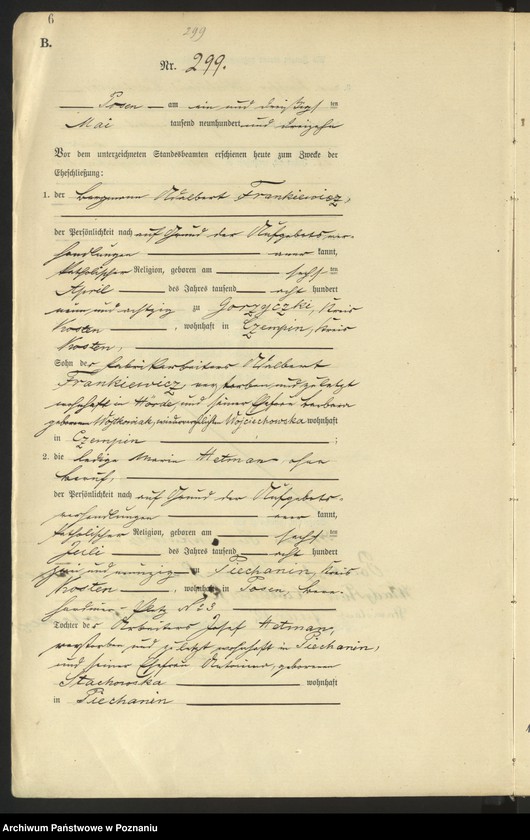 6
299
B.
Nr. 299.
Posen am ein und dreißigsten
Mai tausend neunhundert und dreizehn
Vor dem unterzeichneten Standesbeamten erschienen heute zum Zwecke der
Eheschließung:
1. der Bergmann Adalbert Frankiewicz,
der Persönlichkeit nach auf Grund der Aufgebotsver-
handlungen aner kannt,
katholischer Religion, geboren am sechsten
April des Jahres tausend acht hundert
neun und achtzig zu Gorzyczki, Kreis
Kosten, wohnhaft in Czempin, Kreis
Kosten,
Sohn des Fabrikarbeiters Adalbert
Frankiewicz, verstorben und zuletzt
wohnhaft in Hörde, und seiner Ehefrau Barbara
geborenen Wojtkowiak, wiederverehelichte Wojciechowska wohnhaft
in Czempin;
2. die ledige Maria Hetman ohne
Beruf,
der Persönlichkeit nach auf Grund der Aufgebots-
verhandlungen aner kannt,
katholischer Religion, geboren am sechsten
Juli des Jahres tausend acht hundert
und neunzig zu Piechanin, Kreis
Kosten, wohnhaft in Posen,
Platz No 3
Tochter des Arbeiters Josef Hetman,
verstorben und zuletzt wohnhaft in Piechanin,
und seiner Ehefrau Antonina, geborenen
Stachowska wohnhaft
in Piechanin
Archiwum Państwowe w Poznaniu